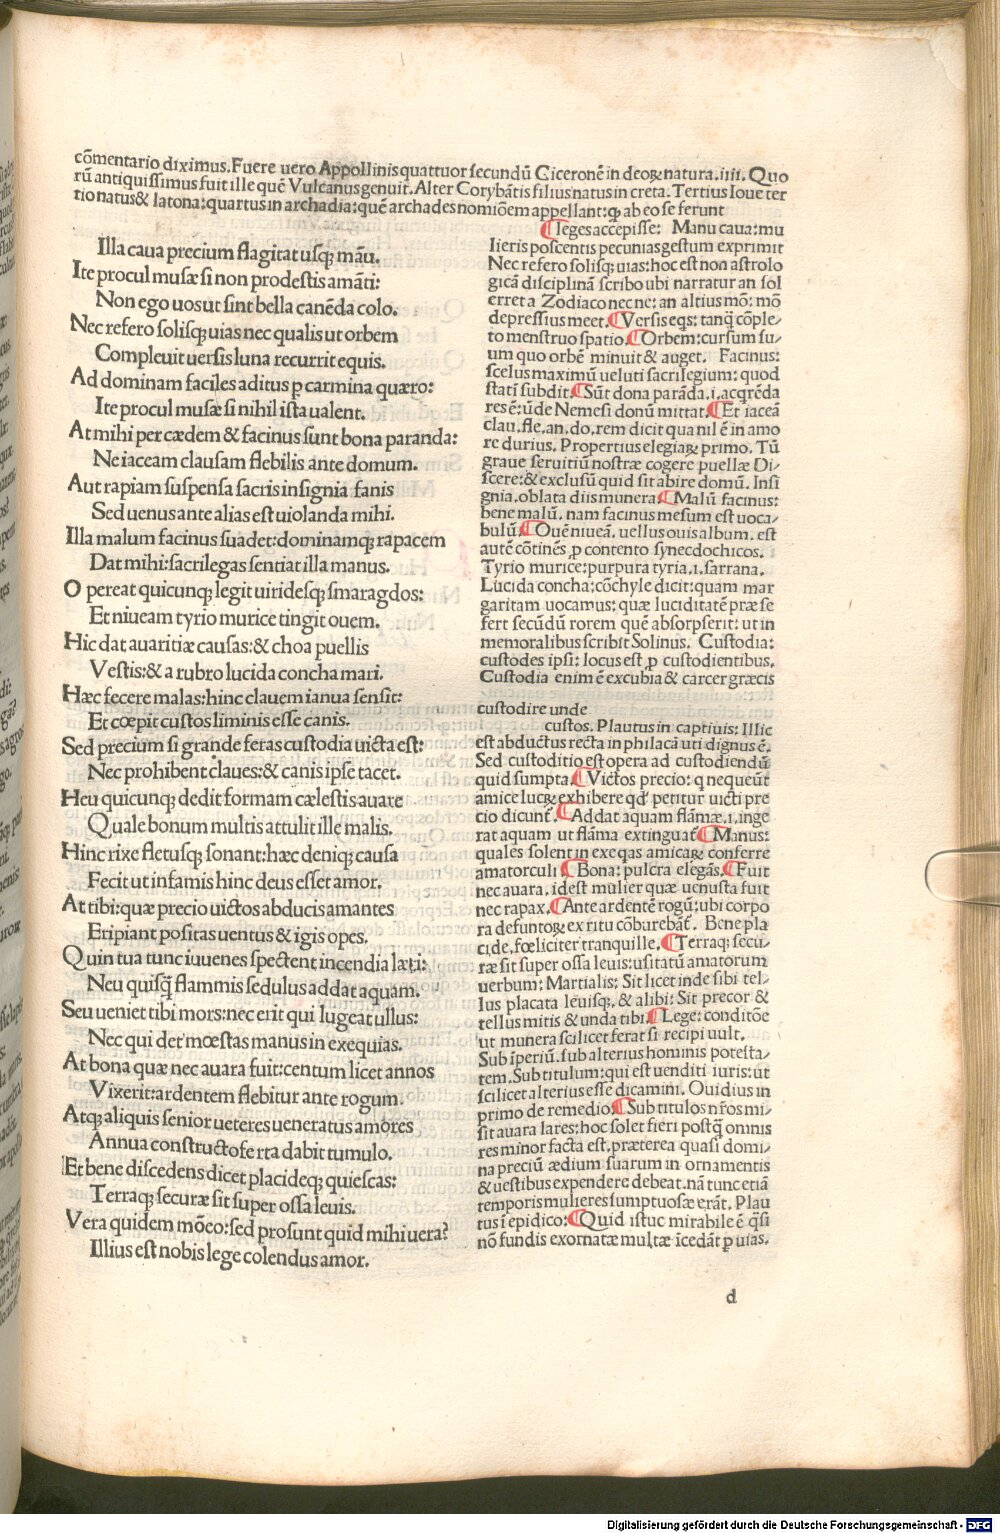 cōmentario diximus. Fuere uero Appollinis quattuor secundū Ciceronē in deoꝝ natura. iiii. Quo
rū antiquissimus fuit ille quē Vulcanus genuit. Alter Corybātis filius natus in creta. Tertius Ioue ter
tio natus & latona: quartus in archadia: quē archades nomiōem appellant: ꝙ ab eo se ferunt
Illa caua precium flagitat usqꝫ māu.
Ite procul musæ si non prodestis amāti:
Non ego uos ut sint bella canēda colo.
Nec refero solisqꝫ uias nec qualis ut orbem
Compleuit uersis luna recurrit equis.
Ad dominam faciles aditus ꝑ carmina quæro:
Ite procul musæ si nihil ista ualent.
At mihi per cædem & facinus sunt bona paranda:
Ne iaceam clausam flebilis ante domum.
Aut rapiam suspensa sacris insignia fanis
Sed uenus ante alias est uiolanda mihi.
Illa malum facinus suadet: dominamqꝫ rapacem
Dat mihi: sacrilegas sentiat illa manus.
O pereat quicunqꝫ legit uiridesqꝫ smaragdos:
Et niueam tyrio murice tingit ouem.
Hic dat auaritiæ causas: & choa puellis
Vestis: & a rubro lucida concha mari.
Hæc fecere malas: hinc clauem ianua sensit:
Et cœpit custos liminis esse canis.
Sed precium si grande feras custodia uicta est:
Nec prohibent claues: & canis ipse tacet.
Heu quicunqꝫ dedit formam cælestis auare
Quale bonum multis attulit ille malis.
Hinc rixe fletusqꝫ sonant: hæc deniqꝫ causa
Fecit ut infamis hinc deus esset amor.
At tibi: quæ precio uictos abducis amantes
Eripiant positas uentus & igis opes.
Quin tua tunc iuuenes spectent incendia læti:
Neu quisꝗ̄ flammis sedulus addat aquam.
Seu ueniet tibi mors: nec erit qui lugeat ullus:
Nec qui det mœstas manus in exequias.
At bona quæ nec auara fuit: centum licet annos
Vixerit: ardentem flebitur ante rogum.
Atqꝫ aliquis senior ueteres ueneratus amores
Annua constructo serta dabit tumulo.
Et bene discedens dicet placideqꝫ quiescas:
Terraqꝫ securæ sit super ossa leuis.
Vera quidem mōeo: sed prosunt quid mihi uera?
Illius est nobis lege colendus amor.
¶ leges accepisse: Manu caua: mu
lieris poscentis pecunias gestum exprimit
Nec refero solisqꝫ uias: hoc est non astrolo
gicā disciplinā scribo ubi narratur an sol
erret a Zodiaco nec ne: an altius mō: mō
depressius meet. ¶ Versis eqs: tanꝗ̄ cōple/
to menstruo spatio. ¶ Orbem: cursum su/
um quo orbē minuit & auget. Facinus:
scelus maximū ueluti sacrilegium: quod
statī subdit. ¶ Sūt dona parāda. i. acqrēda
res ē: ūde Nemesi donū mittat. ¶ Et iaceā
clau. fle. an. do. rem dicit qua nil ē in amo
re durius. Propertius elegiaꝝ primo. Tū
graue seruitiū nostræ cogere puellæ Di/
scere: & exclusū quid sit abire domū. Insi
gnia. oblata diis munera. ¶ Malū facinus:
bene malū. nam facinus mesum est uoca/
bulū. ¶ Ouē niueā. uellus ouis album. est
autē cōtinēs ꝓ contento synecdochicos.
Tyrio murice: purpura tyria. i. sarrana.
Lucida concha: cōchyle dicit: quam mar
garitam uocamus: quæ luciditatē præ se
fert secūdū rorem quē absorpserit: ut in
memoralibus scribit Solinus. Custodia:
custodes ipsi: locus est ꝓ custodientibus.
Custodia enim ē excubia & carcer græcis
custodire unde
custos. Plautus in captiuis: Illic
est abductus recta in philacā uti dignus ē.
Sed custoditio est opera ad custodiendū
quid sumpta. ¶ Victos precio: q nequeūt
amice lucꝝ exhibere qd' petitur uicti pre
cio dicunt'. ¶ Addat aquam flāmæ. i. inge
rat aquam ut flāma extinguat'. ¶ Manus:
quales solent in exeqas amicaꝝ conferre
amatorculi. ¶ Bona: pulcra elegās. ¶ Fuit
nec auara. id est mulier quæ uenusta fuit
nec rapax. ¶ Ante ardentē rogū: ubi corpo
ra defuntoꝝ ex ritu cōburebāt'. Bene pla
cide. fœliciter tranquille. ¶ Terraqꝫ secu/
ræ sit super ossa leuis: usitatū amatorum
uerbum: Martialis: Sit licet inde sibi tel/
lus placata leuisqꝫ. & alibi: Sit precor &
tellus mitis & unda tibi. ¶ Lege: conditōe
ut munera scilicet ferat si recipi uult.
Sub īperiū. sub alterius hominis potesta/
tem. Sub titulum: qui est uenditi iuris: ut
scilicet alterius esse dicamini. Ouidius in
primo de remedio. ¶ Sub titulos nr̄os mi/
sit auara lares: hoc solet fieri postꝗ̄ omnis
res minor facta est. præterea quasi domi/
na preciū ædium suarum in ornamentis
& uestibus expendere debeat. nā tunc etiā
temporis mulieres sumptuosæ erāt. Plau
tus ī epidico: ¶ Quid istuc mirabile ē q̄si
nō fundis exornatæ multæ īcedāt ꝑ uias.
d
Digitalisierung gefördert durch die Deutsche Forschungsgemeinschaft - DFG